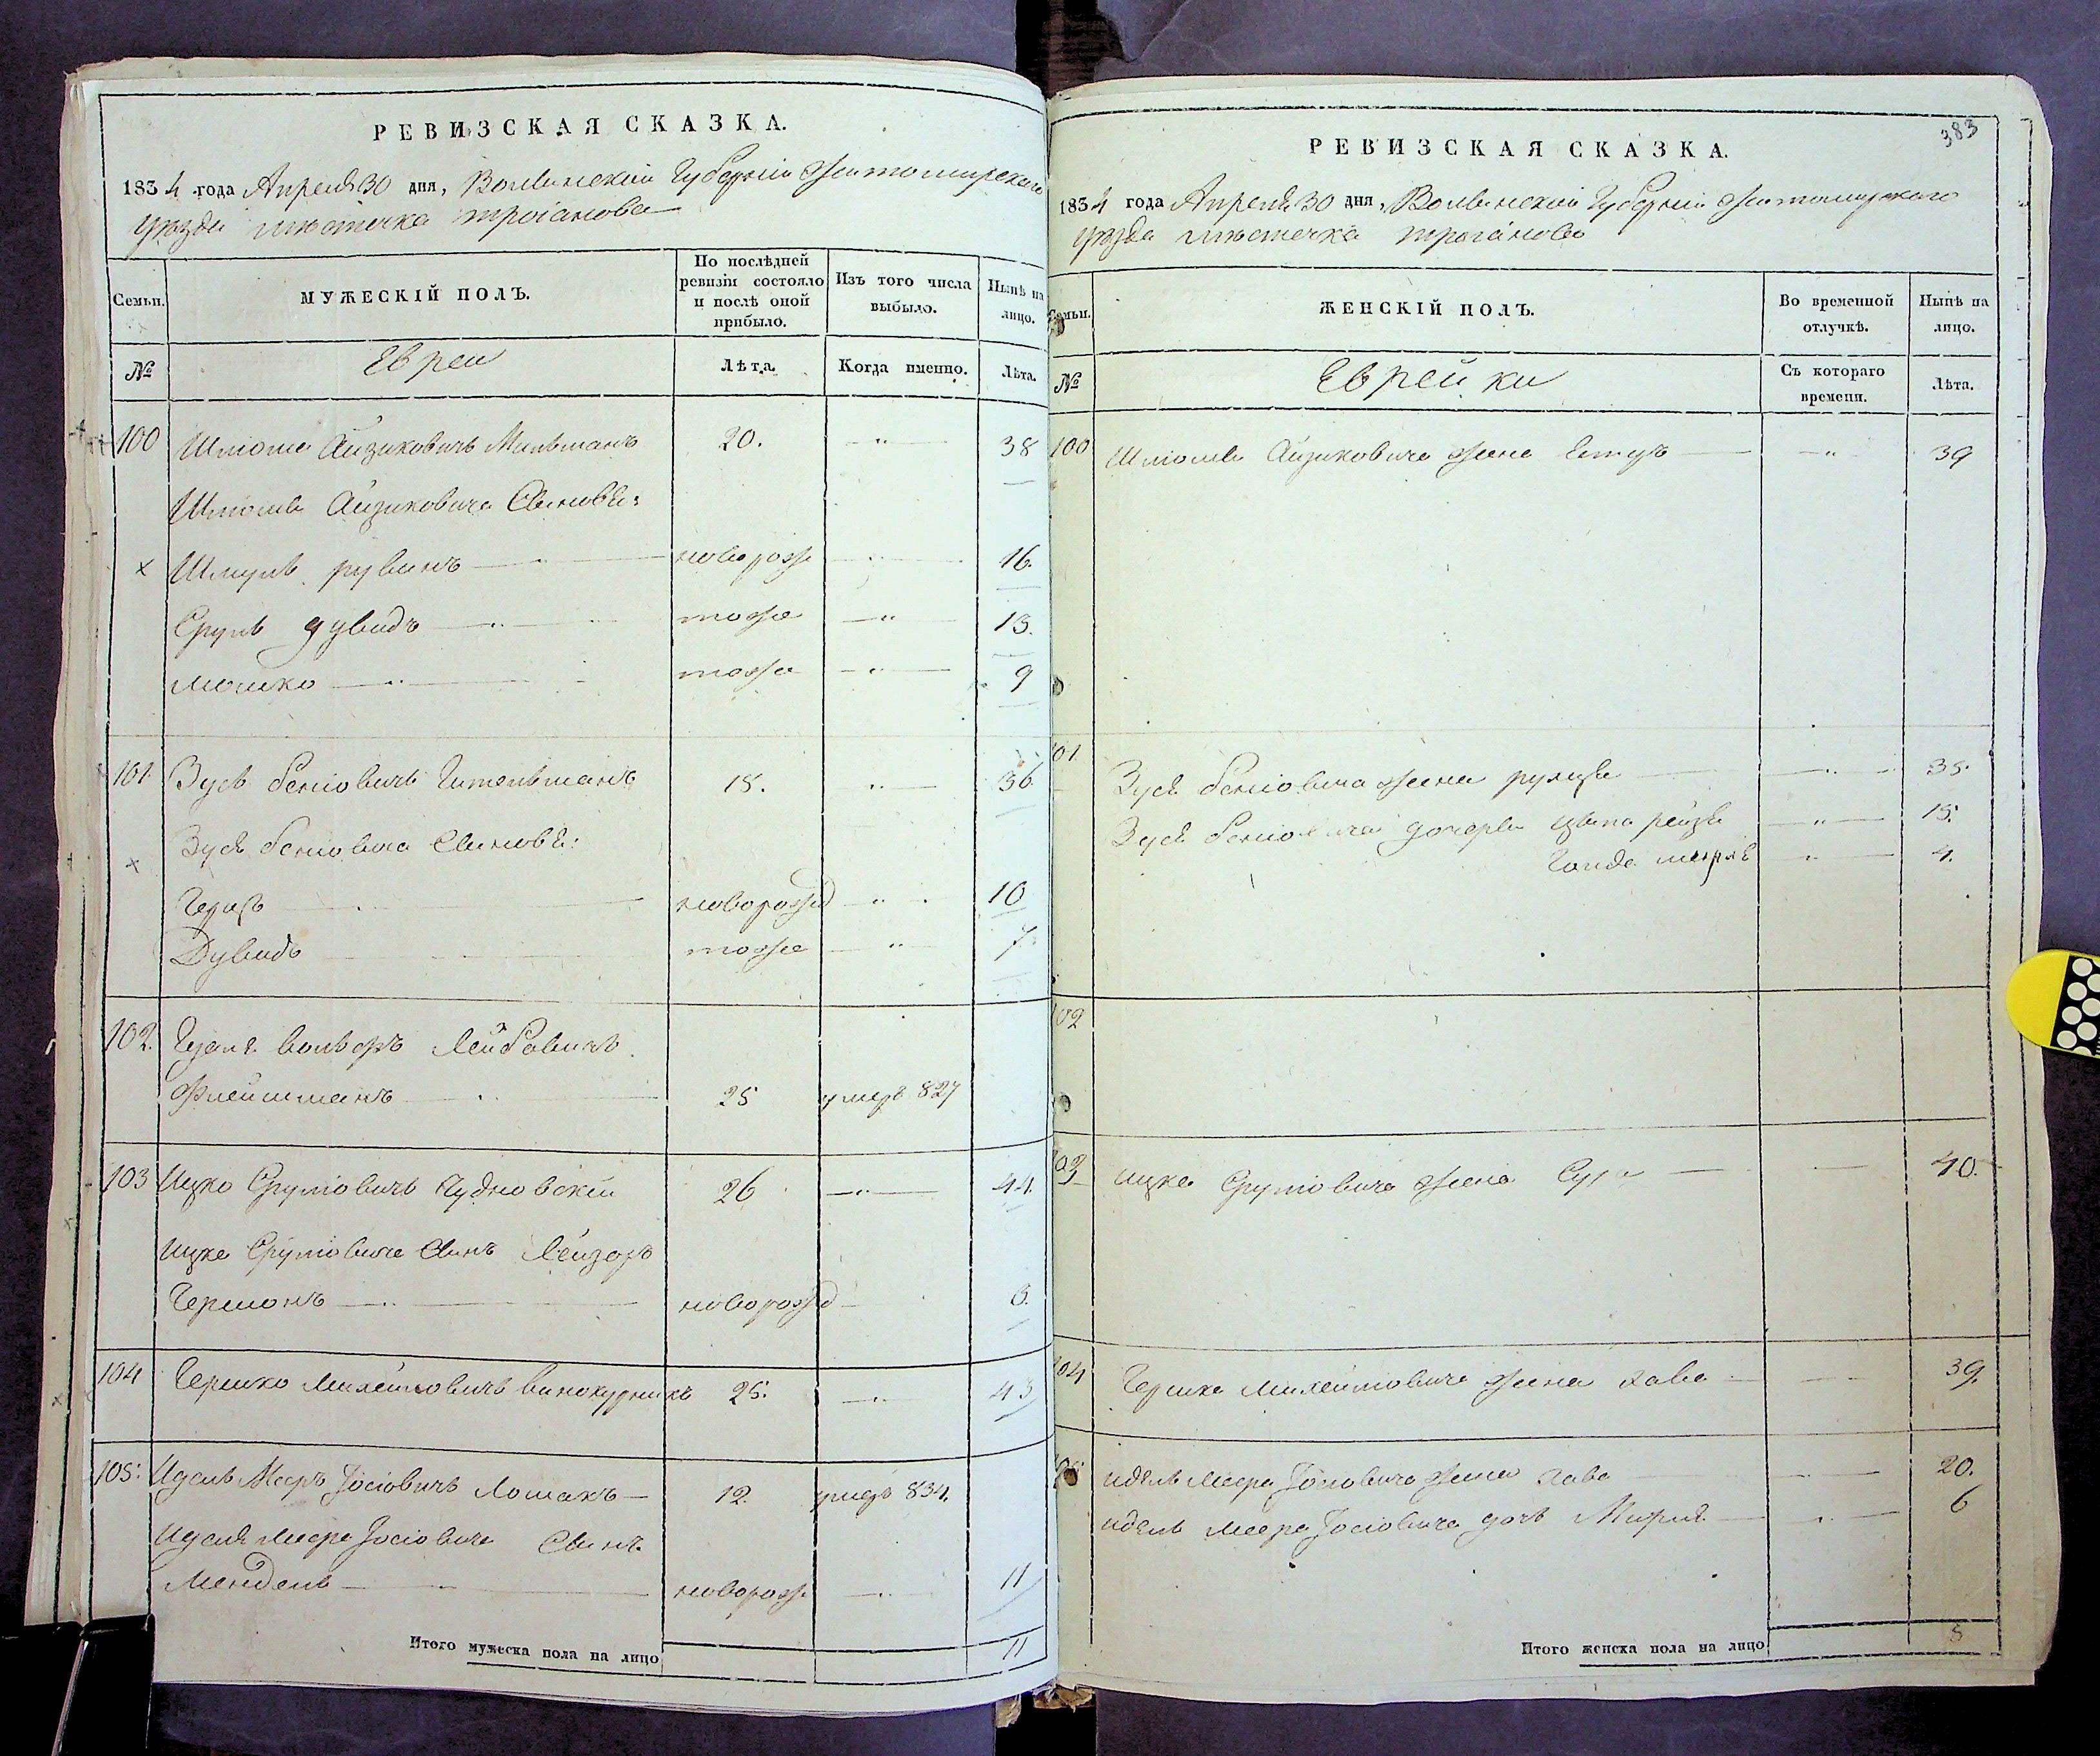 РЕВИЗСКАЯ СКАЗКА.
1834 года Апреля 30 дня, Волынской Губернии Житомирского
уезда местечка Троіанова
Семьи.
МУЖЕСКІЙ ПОЛЪ.
По послѣдней ревизіи состояло и послѣ оной прибыло.
Изъ того числа выбыло.
Нынѣ на лицо.
№
Евреи
Лѣта.
Когда именно.
Лѣта.
100 Шліома Айзиковичъ Мильманъ 20. —"— 38
Шліомы Айзиковича Сыновья:
× Шмуль рувинъ — новорож 16.
Сруль дувидъ — тоже —"— 13.
Мошко — тоже —"— 9
101. Зусь Беніовичъ Гительманъ 18. "— 36.
× Зуся Беніовича Сыновья:
Герш — новорожд —"— 10
Дувидъ — тоже —"— 7
102. Вольфъ Лейбовичъ
Флейшманъ — 25 умеръ 827
103 Ицко Сруліовичъ Чудновскій 26 —"— 44.
Ицка Сруліовича Сынъ Лейзоръ
Гершонъ — новорожд — 3.
104 Гершко Михелiовичъ Винокурникъ 25. —"— 43
105. Идель Мееръ Іосіовичъ Ломакъ — 12. умеръ 834.
Иделя Меера Іосіовича Сынъ
Мендель — новорож — 11
Итого мужеска пола на лицо 11
383
РЕВИЗСКАЯ СКАЗКА.
1834 года Апреля 30 дня, Волынской Губернии Житомирского
уезда местечка Троіанова
Семьи.
ЖЕНСКІЙ ПОЛЪ.
Во временной отлучкѣ.
Нынѣ на лицо.
№
Еврейки
Съ котораго времени.
Лѣта.
100 Шліомы Айзиковича жена —"— 39
101 Зуся Беніовича жена — 35.
Зуся Беніовича дочери Цыпа рейзя —"— 15.
Голда —"— 4.
102
103 Ицка Сруліовича жена Сура — 40.
104 Гершка Михелiовича жена Хава — 39.
105 Идель Меера Іосіовича жена Хава — 20.
Идель Меера Іосіовича дочь Мириам — 6
Итого женска пола на лицо 8